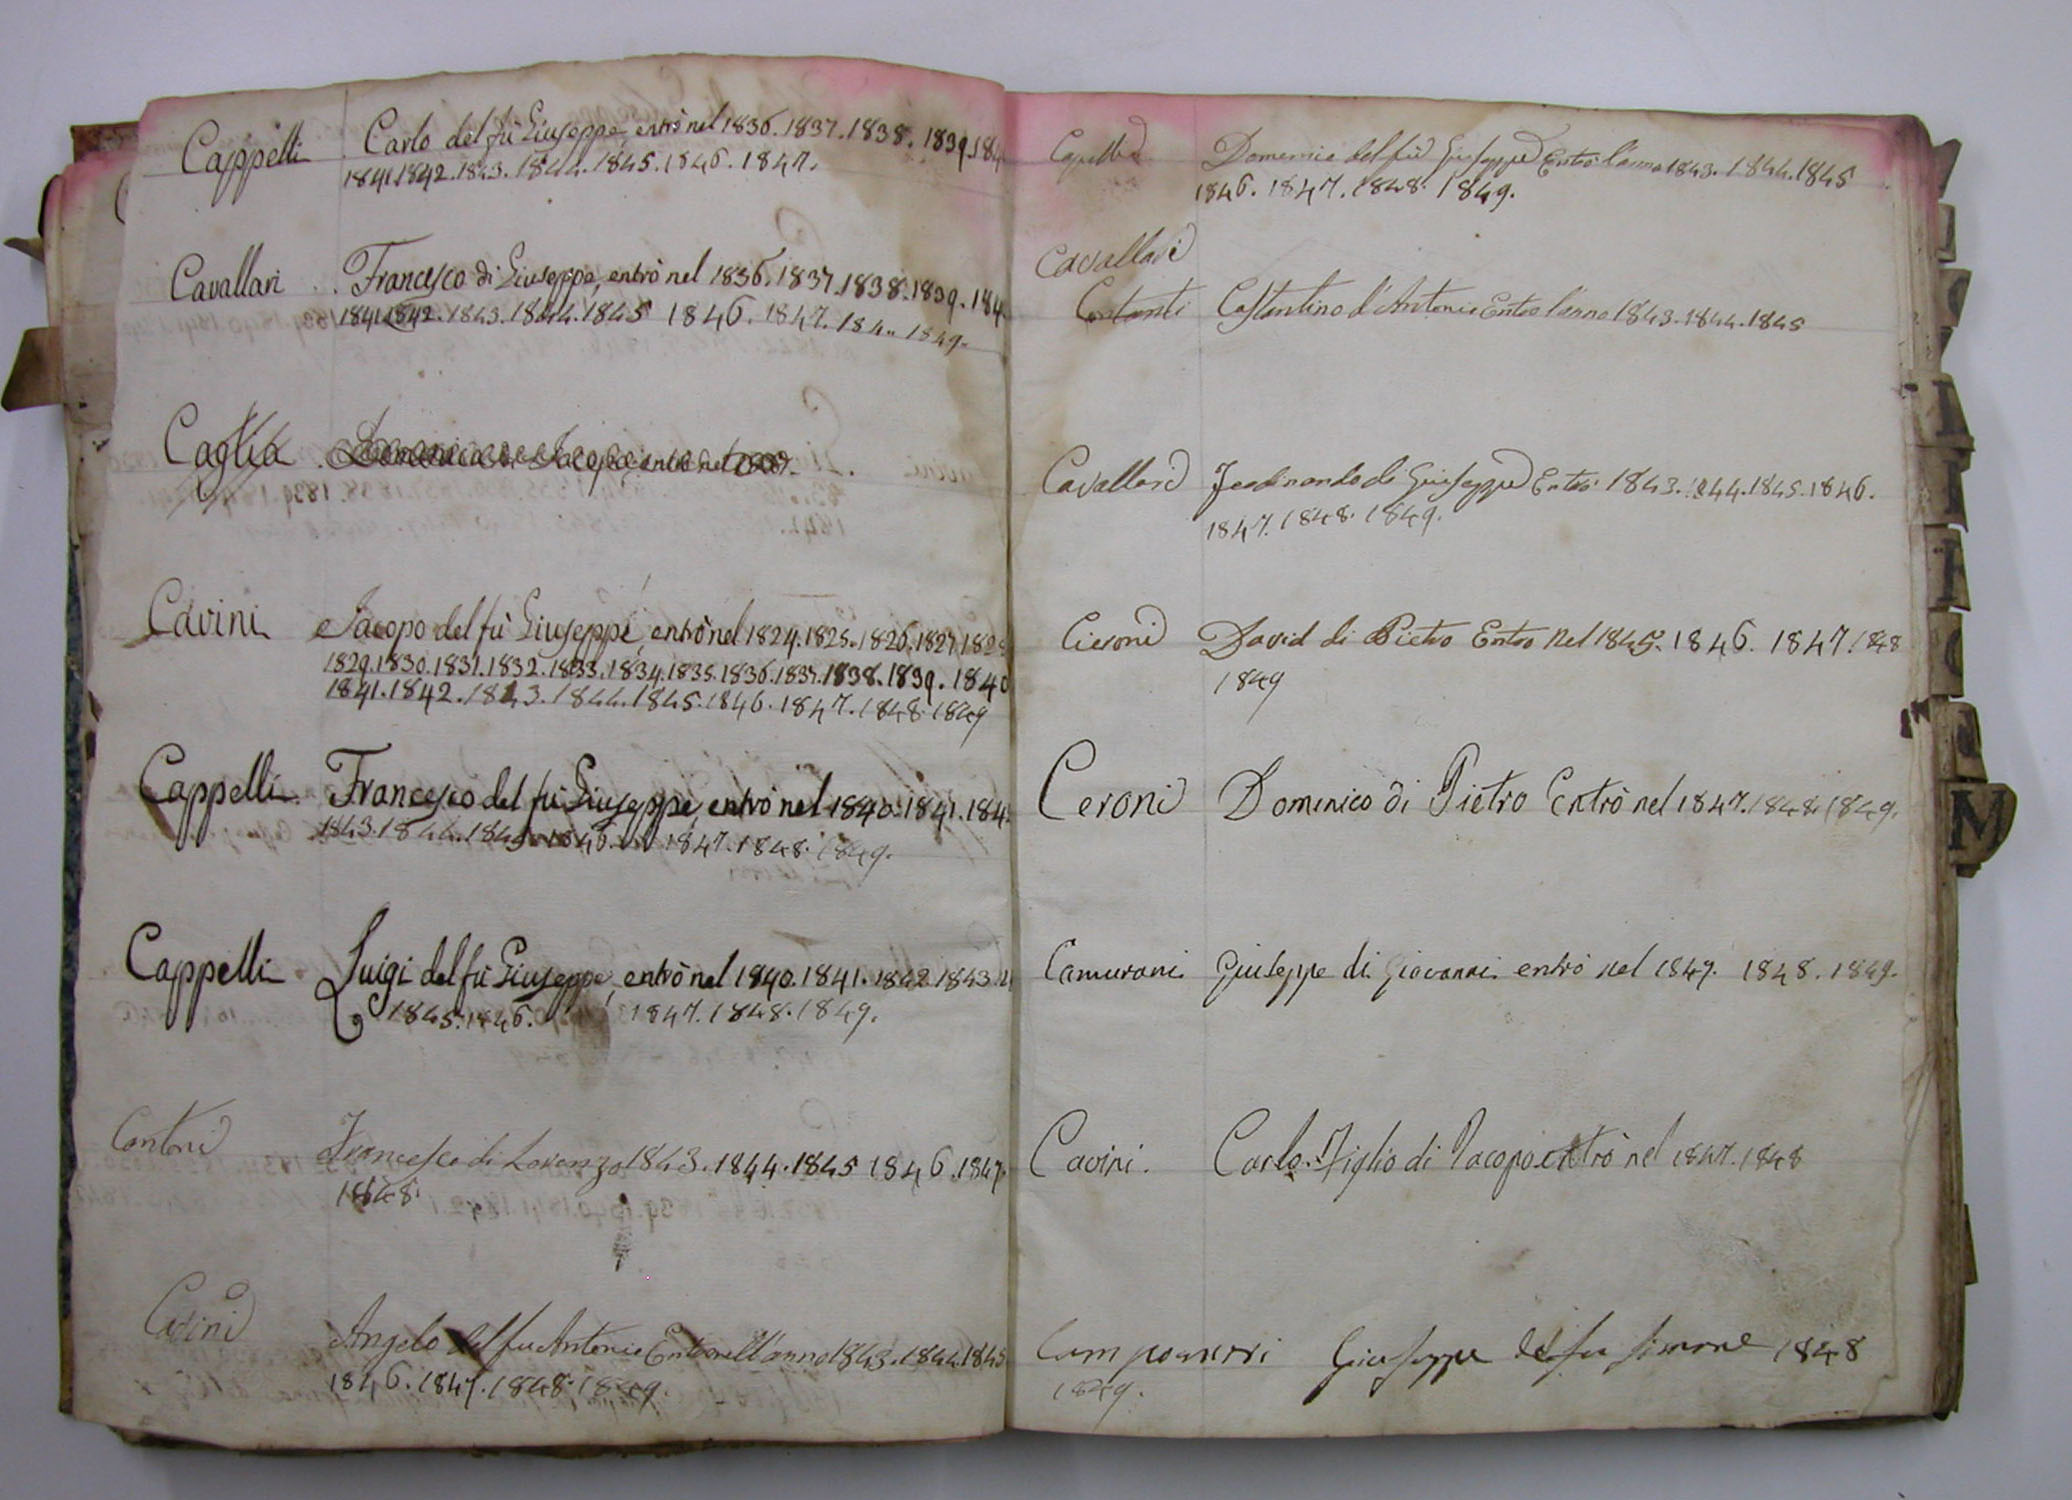 Cappelli Carlo del fù Giuseppe, entrò nel 1836. 1837. 1838. 1839. 184
1841. 1842. 1843. 1844. 1845. 1846. 1847.
Cavallari Francesco di Giuseppe, entrò nel 1836. 1837. 1838. 1839. 184
1841. 1842. 1843. 1844. 1845 1846. 1847. 184 1849.
Caglia
Cavini Jacopo del fù Giuseppe, entrò nel 1824. 1825. 1826. 1827. 1828
1829. 1830. 1831. 1832. 1833. 1834. 1835. 1836. 1837. 1838. 1839. 1840
1841. 1842. 1843. 1844. 1845. 1846. 1847. 1848. 1849
Cappelli Francesco del fù Giuseppe, entrò nel 1840. 1841. 184
1843. 1844. 1845. 1846. 1847. 1848. 1849.
Cappelli Luigi del fù Giuseppe, entrò nel 1840. 1841. 1842. 1843.
1845. 1846. 1847. 1848. 1849.
Contoni Francesco di Lorenzo 1843. 1844. 1845 1846. 1847.
1848.
Cavini Angelo del fu Antonio Entro nell anno 1843. 1844. 1845
1846. 1847. 1848. 1849.
Capelli Domenico del fù Giuseppe Entrò l'anno 1843. 1844. 1845
1846. 1847. 1848. 1849.
Cavallari
Costantino d'Antonio Entro l'anno 1843. 1844. 1845
Cavallari Ferdinando di Giuseppe Entrò 1843. 1844. 1845. 1846.
1847. 1848. 1849.
Cieroni David di Pietro Entro Nel 1845. 1846. 1847. 1848
1849
Ceroni Domenico di Pietro Entrò nel 1847. 1848. 1849.
Camurani Giuseppe di Giovanni entrò nel 1847. 1848. 1849.
Cavini. Carlo. Figlio di Jacopo entrò nel 1847. 1848
Giuseppe del fu Simone 1848
1849.
M